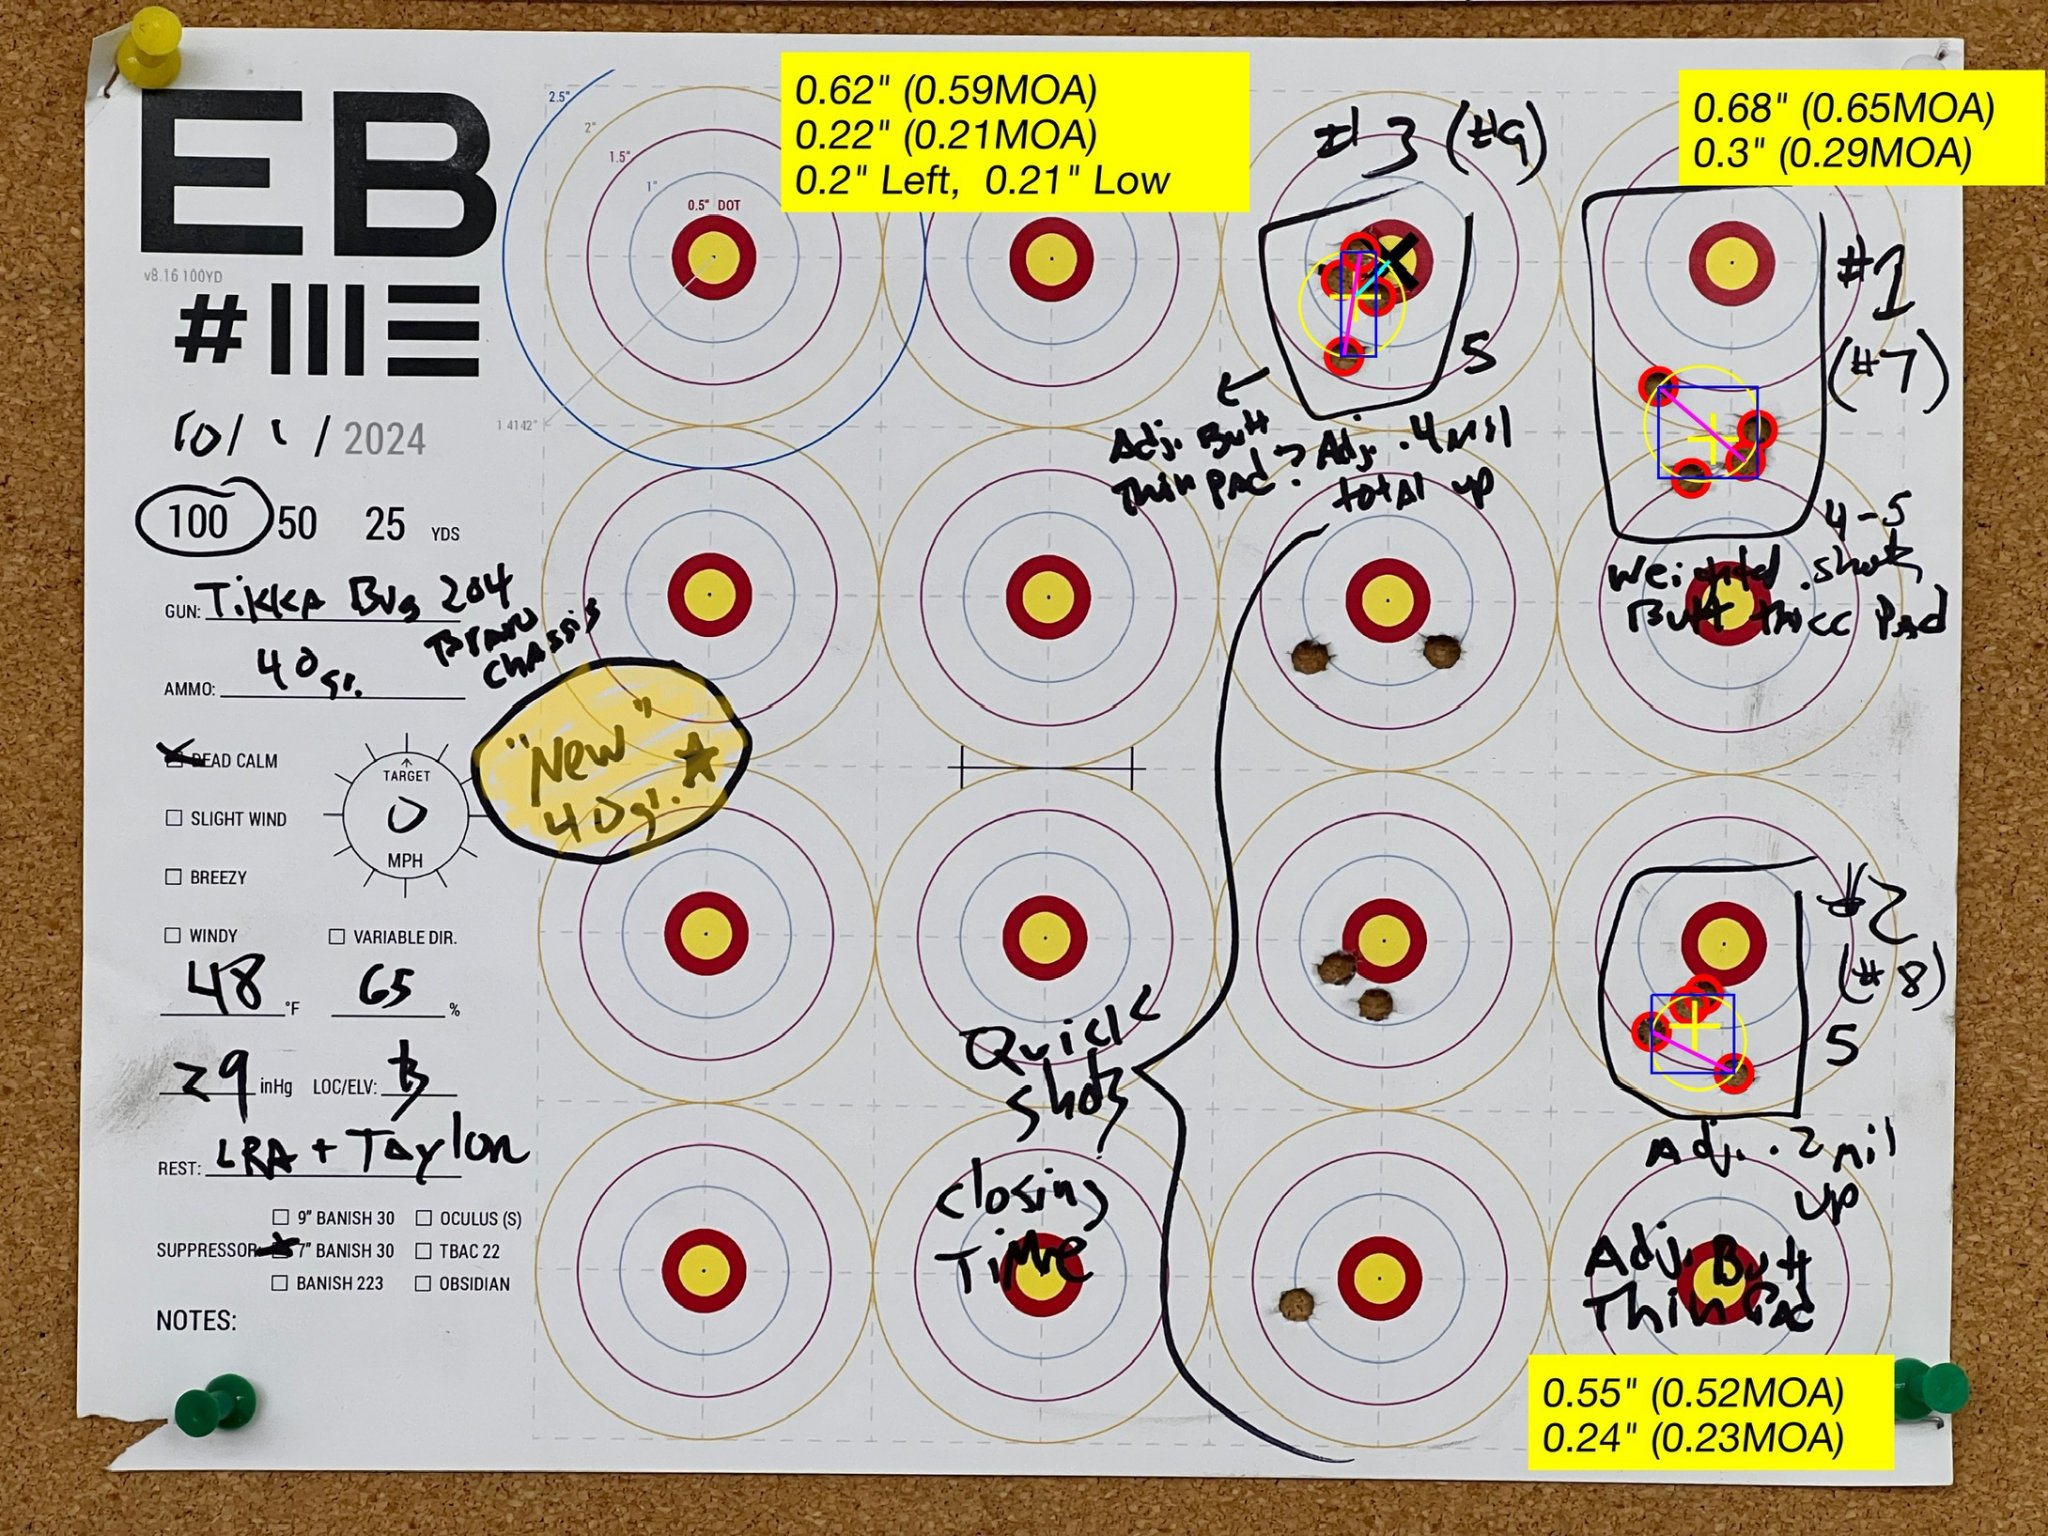 EB
v8.16 100YD
#
10/ 1 / 2024
100 50 25 YDS
GUN: Tikka Bug 204
Bravo
Chassis
AMMO: 40gr.
"New"
40gr.
DEAD CALM
SLIGHT WIND
BREEZY
WINDY
VARIABLE DIR.
TARGET
0
MPH
48 °F 65 %
29 inHg LOC/ELV:
REST: LRA + Taylon
SUPPRESSOR:
9" BANISH 30
OCULUS (S)
7" BANISH 30
TBAC 22
BANISH 223
OBSIDIAN
NOTES:
2.5"
2"
1.5"
1"
0.5" DOT
1.4142"
0.62" (0.59MOA)
0.22" (0.21MOA)
0.2" Left, 0.21" Low
#3 (#9)
5
Adj. Butt
Thin Pad
Adj. .4 Mil
total up
0.68" (0.65MOA)
0.3" (0.29MOA)
#1
(#7)
4-5
shots
Weighted
Butt thicc Pad
Quick
Shots
Closing
Time
#2
(#8)
5
Adj. .2 mil
up
Adj. Butt
Thin Pad
0.55" (0.52MOA)
0.24" (0.23MOA)